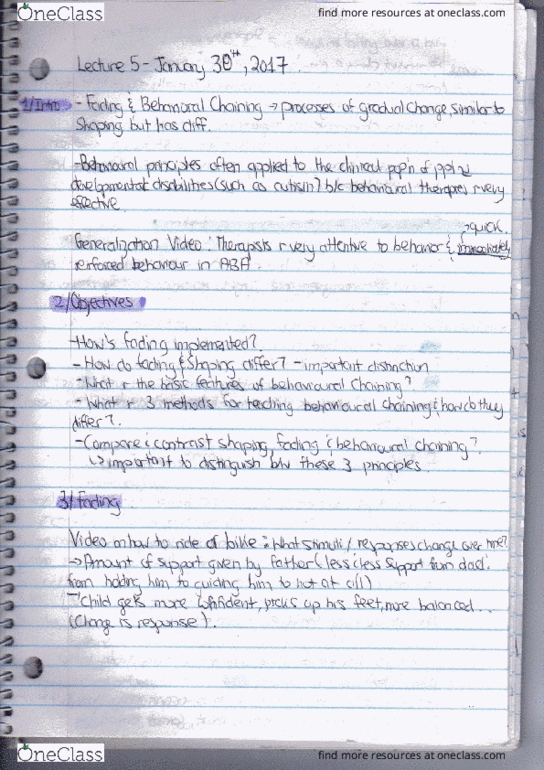 OneClass
find more resources at oneclass.com
Lecture 5 - January 30th, 2017.
1/Intro - Fading & Behavioral Chaining → processes of gradual change, similar to
shaping but has diff.
-Behavioural principles often applied to the clinical pop'n of ppl w
developmental disabilities (such as autism) b/c behavioural therapies r very
effective.
→quick.
Generalization Video: Therapists r very attentive to behavior & immediately
reinforced behaviour in ABA.
2/Objectives
-How's fading implemented?
-How do fading & shaping differ? - important distinction
-What r the basic features of behavioural chaining?
-What r 3 methods for teaching behavioural chaining & how do they
differ?
-Compare & contrast shaping, fading & behavioural chaining?
↳ important to distinguish b/w these 3 principles.
3/Fading
Video on how to ride a bike: What stimuli / responses change over time?
→Amount of support given by Father (less & less support from dad.
from holding him to guiding him to not at all)
-Child gets more confident, picks up his feet, more balanced...
(Change is response).
OneClass
find more resources at oneclass.com